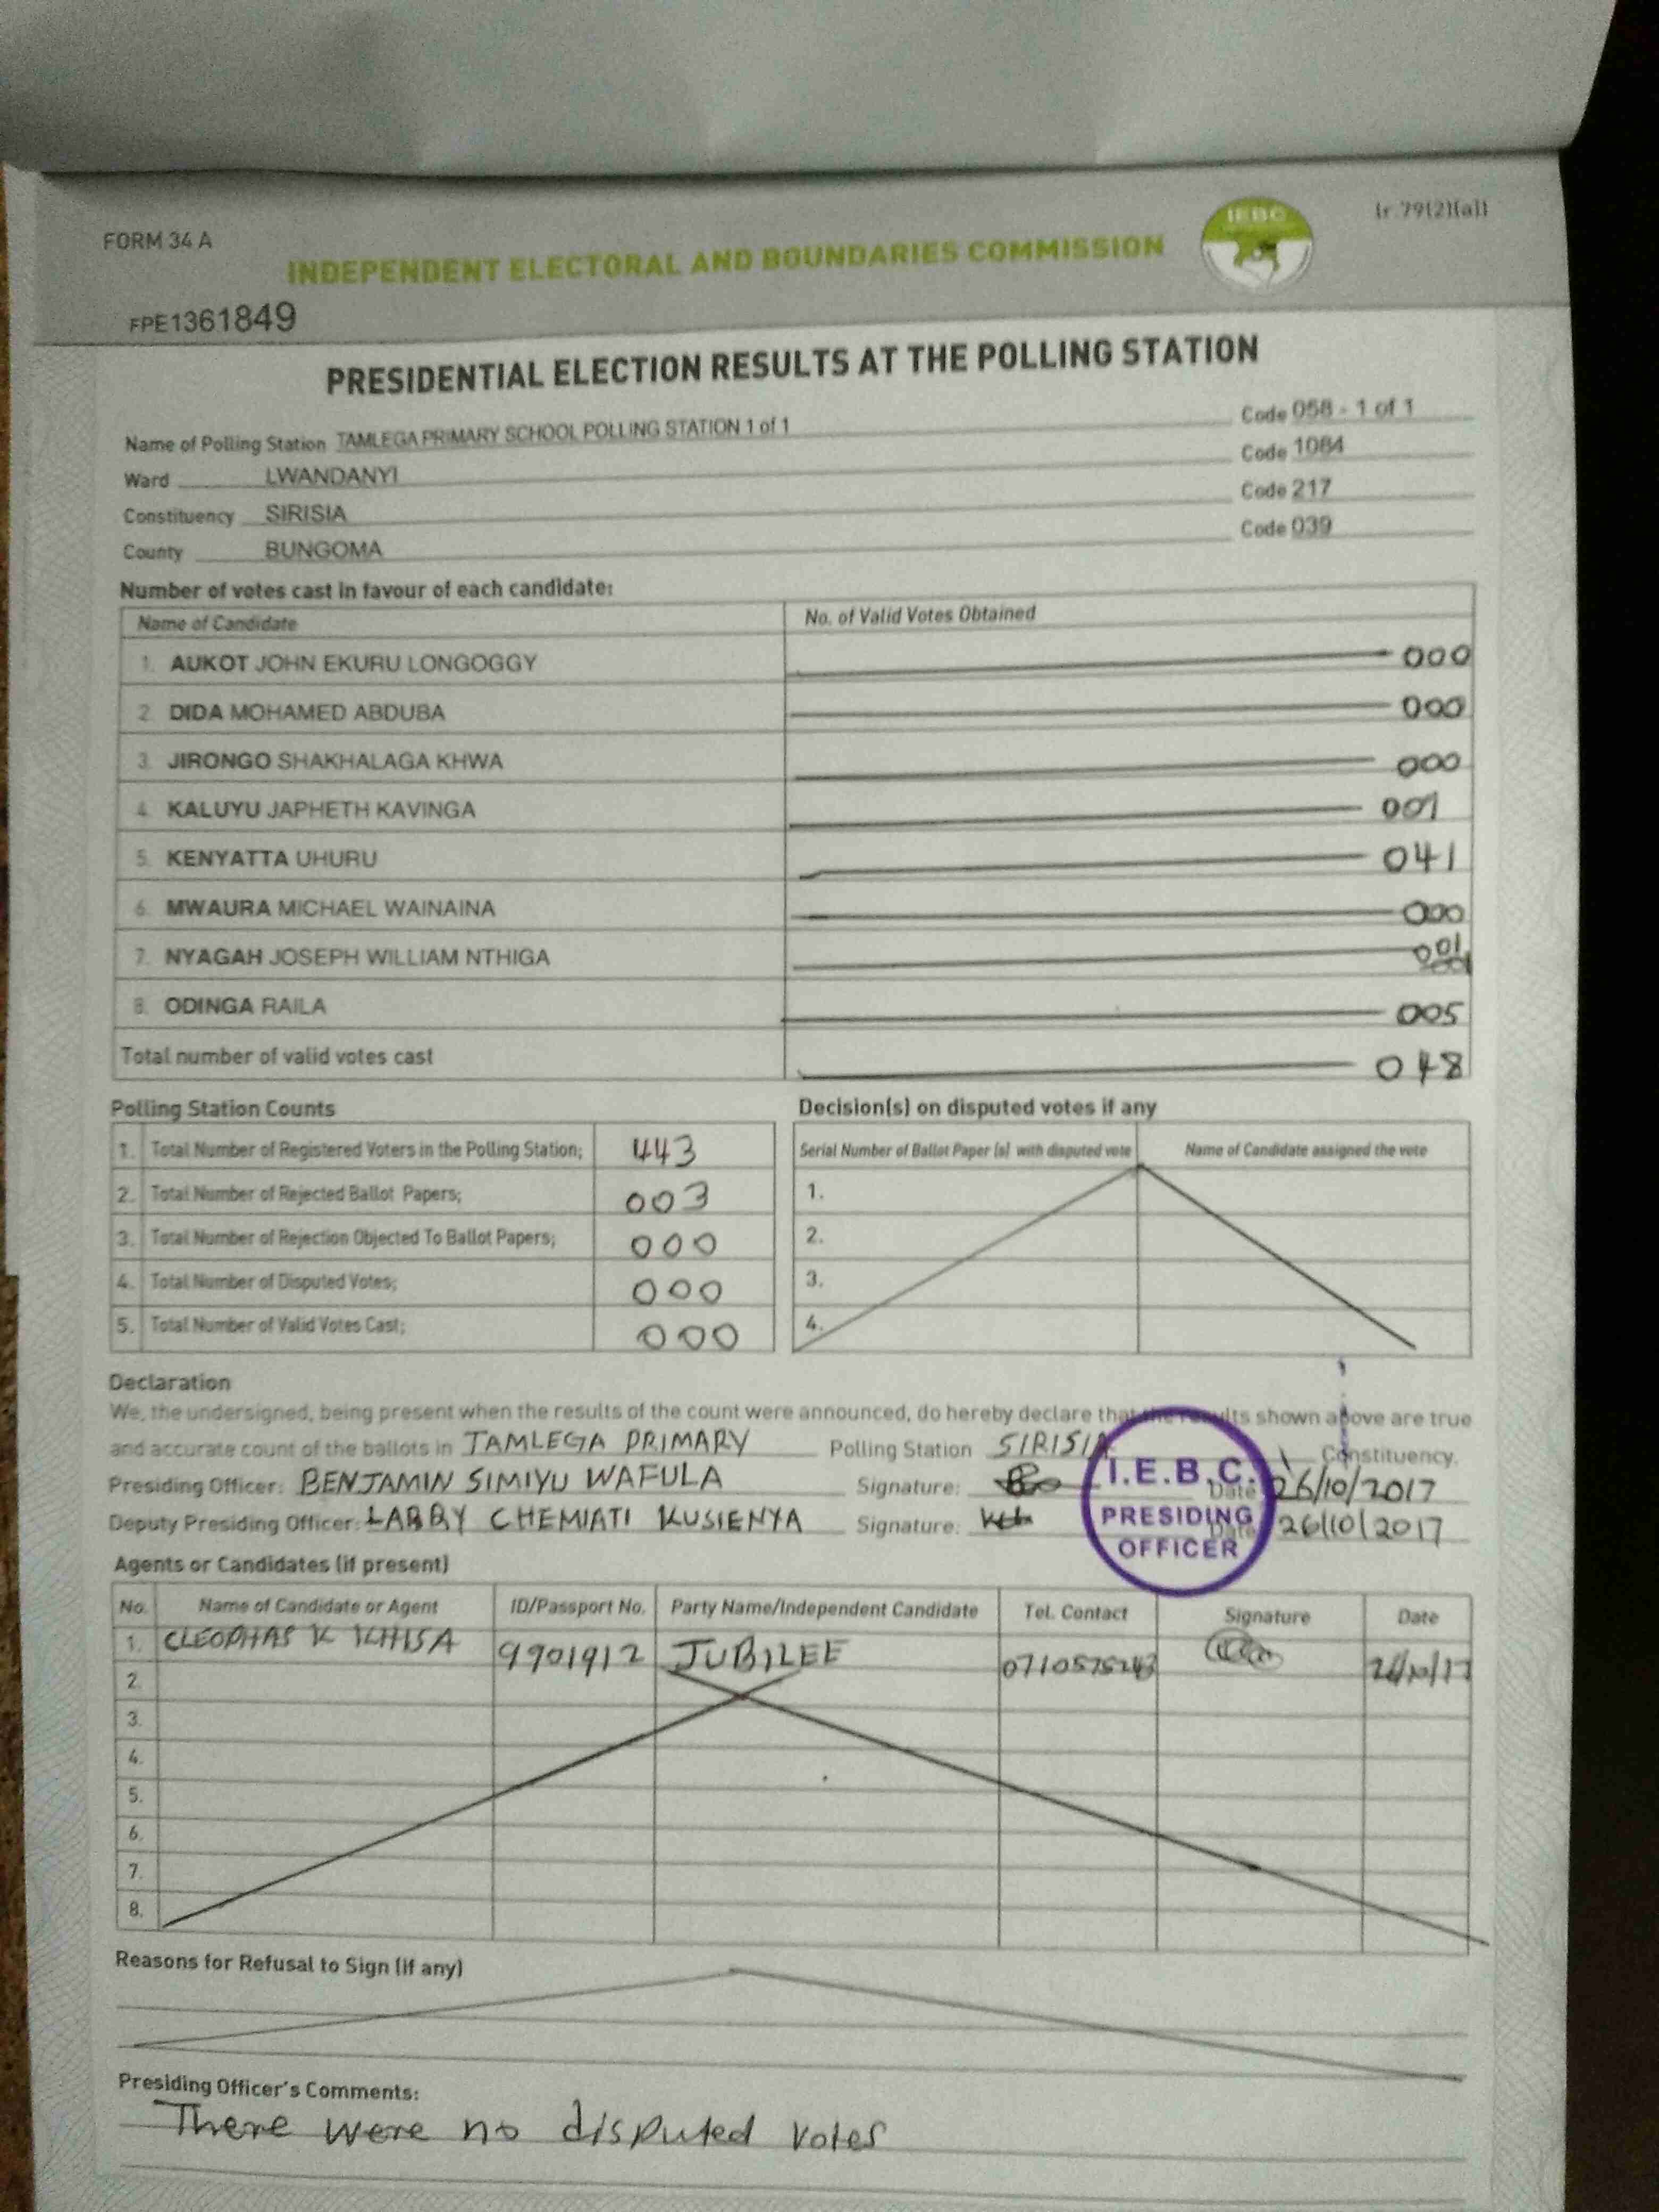 FORM 34 A
(r. 79(2)(a))
IEBC
INDEPENDENT ELECTORAL AND BOUNDARIES COMMISSION
FPE1361849
PRESIDENTIAL ELECTION RESULTS AT THE POLLING STATION
Name of Polling Station TAMLEGA PRIMARY SCHOOL POLLING STATION 1 of 1 Code 058 - 1 of 1
Ward LWANDANYI Code 1084
Constituency SIRISIA Code 217
County BUNGOMA Code 039
Number of votes cast in favour of each candidate:
Name of Candidate No. of Valid Votes Obtained
1. AUKOT JOHN EKURU LONGOGGY 000
2. DIDA MOHAMED ABDUBA 000
3. JIRONGO SHAKHALAGA KHWA 000
4. KALUYU JAPHETH KAVINGA 001
5. KENYATTA UHURU 041
6. MWAURA MICHAEL WAINAINA 000
7. NYAGAH JOSEPH WILLIAM NTHIGA 001
8. ODINGA RAILA 005
Total number of valid votes cast 048
Polling Station Counts
1. Total Number of Registered Voters in the Polling Station; 443
2. Total Number of Rejected Ballot Papers; 003
3. Total Number of Rejection Objected To Ballot Papers; 000
4. Total Number of Disputed Votes; 000
5. Total Number of Valid Votes Cast; 000
Decision(s) on disputed votes if any
Serial Number of Ballot Paper (s) with disputed vote Name of Candidate assigned the vote
1.
2.
3.
4.
Declaration
We, the undersigned, being present when the results of the count were announced, do hereby declare that the results shown above are true
and accurate count of the ballots in TAMLEGA PRIMARY Polling Station SIRISIA Constituency.
Presiding Officer: BENJAMIN SIMIYU WAFULA Signature: Date 26/10/2017
Deputy Presiding Officer: LARRY CHEMIATI KUSIENYA Signature: Date 26/10/2017
I.E.B.C.
PRESIDING
OFFICER
Agents or Candidates (if present)
No. Name of Candidate or Agent ID/Passport No. Party Name/Independent Candidate Tel. Contact Signature Date
1. CLEOPHAS K KHISA 9901912 JUBILEE
2.
3.
4.
5.
6.
7.
8.
Reasons for Refusal to Sign (if any)
Presiding Officer's Comments:
There were no disputed votes